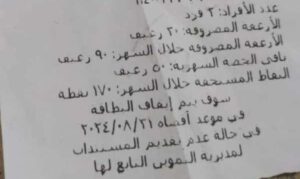 عدد الأفراد: ٢ فرد
الأرغفة المصروفة: ٢٠ رغيف
الأرغفة المصروفة خلال الشهر: ٩٠ رغيف
باقى الحصة الشهرية: ٥٠ رغيف
النقاط المستحقة خلال الشهر: ١٧٠ نقطة
سوف يتم إيقاف البطاقة
في موعد أقصاه ٢٠٢٤/٠٨/٢١
في حالة عدم تقديم المستندات
لمديرية التموين التابع لها